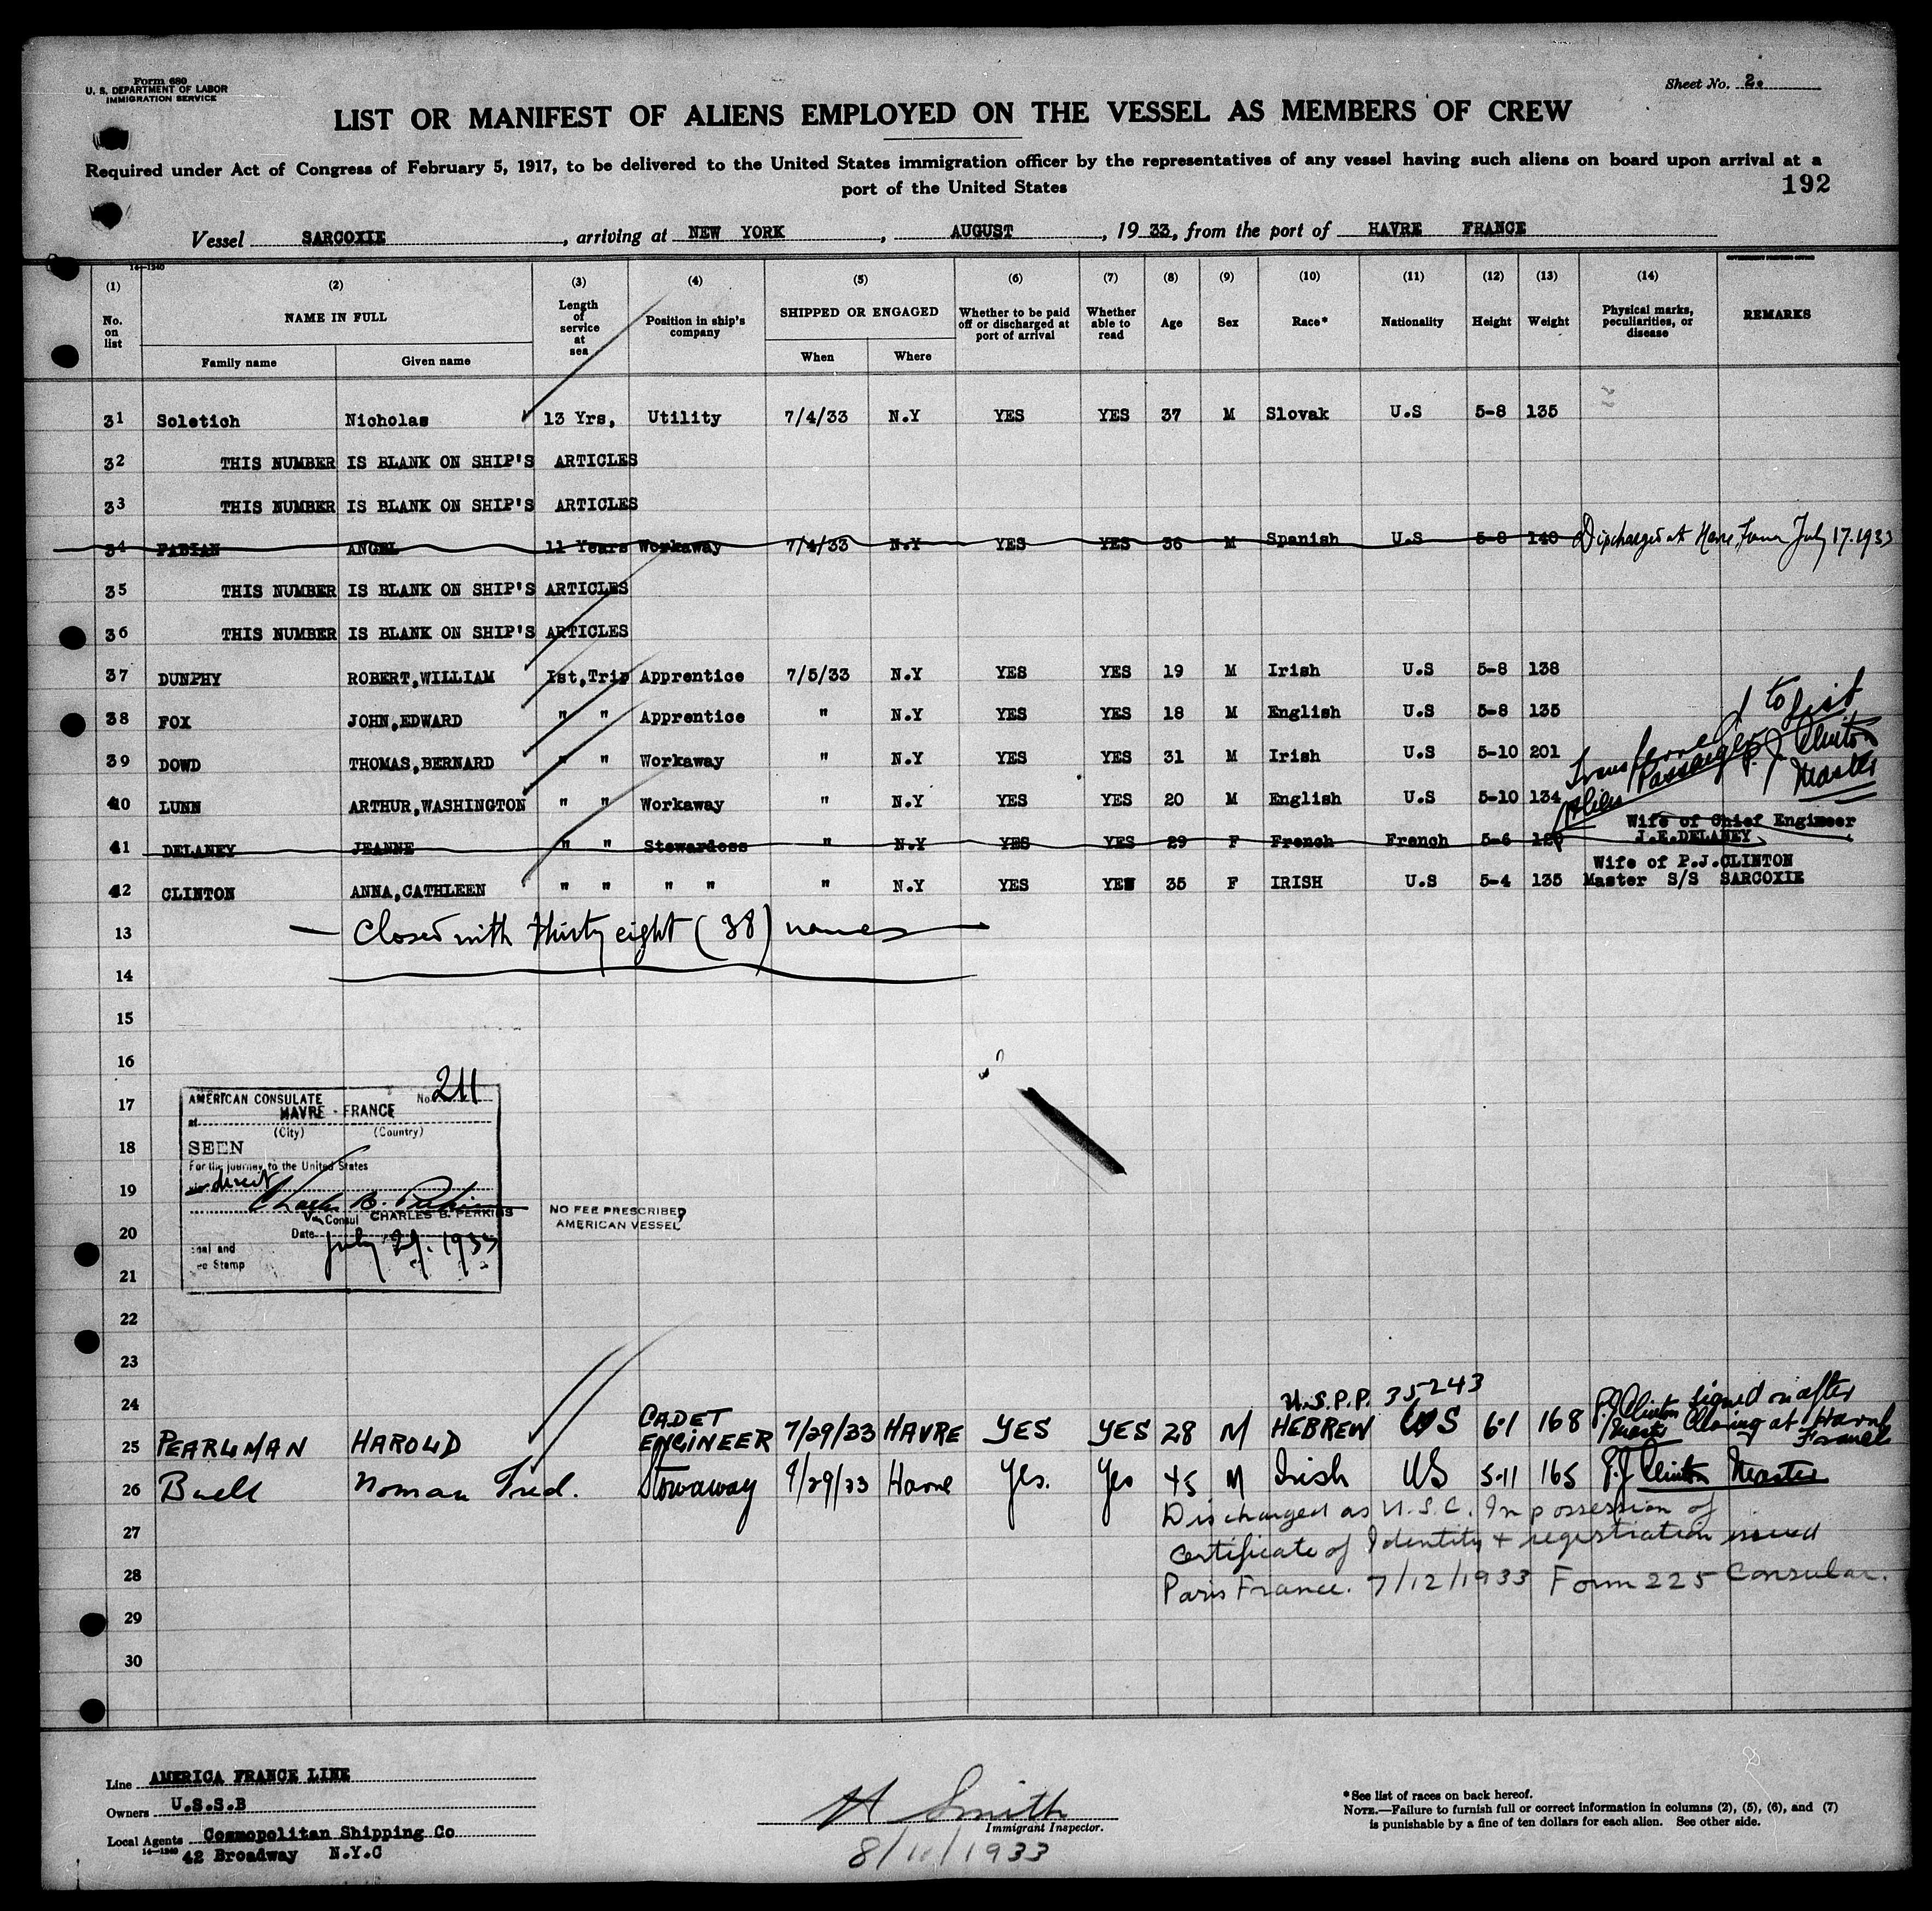 Form 680
U. S. DEPARTMENT OF LABOR
IMMIGRATION SERVICE
Sheet No. 2.
LIST OR MANIFEST OF ALIENS EMPLOYED ON THE VESSEL AS MEMBERS OF CREW
Required under Act of Congress of February 5, 1917, to be delivered to the United States immigration officer by the representatives of any vessel having such aliens on board upon arrival at a
port of the United States
192
Vessel SARCOXIE, arriving at NEW YORK, AUGUST, 19 33, from the port of HAVRE FRANCE
14—1240
GOVERNMENT PRINTING OFFICE
(1) (2) (3) (4) (5) (6) (7) (8) (9) (10) (11) (12) (13) (14)
No. on list NAME IN FULL Length of service at sea Position in ship's company SHIPPED OR ENGAGED Whether to be paid off or discharged at port of arrival Whether able to read Age Sex Race* Nationality Height Weight Physical marks, peculiarities, or disease REMARKS
Family name Given name When Where
31 Soletich Nicholas 13 Yrs, Utility 7/4/33 N.Y YES YES 37 M Slovak U.S 5-8 135
32 THIS NUMBER IS BLANK ON SHIP'S ARTICLES
33 THIS NUMBER IS BLANK ON SHIP'S ARTICLES
34 FABIAN ANGEL 11 Years Workaway 7/4/33 N.Y YES YES 36 M Spanish U.S 5-8 140 Discharged at Havre, July 17. 1933
35 THIS NUMBER IS BLANK ON SHIP'S ARTICLES
36 THIS NUMBER IS BLANK ON SHIP'S ARTICLES
37 DUNPHY ROBERT,WILLIAM Ist,Trip Apprentice 7/5/33 N.Y YES YES 19 M Irish U.S 5-8 138
38 FOX JOHN,EDWARD " " Apprentice " N.Y YES YES 18 M English U.S 5-8 135
39 DOWD THOMAS,BERNARD " " Workaway " N.Y YES YES 31 M Irish U.S 5-10 201
40 LUNN ARTHUR,WASHINGTON " " Workaway " N.Y YES YES 20 M English U.S 5-10 134
Transferred to list
Alien Passenger P. J. Clinton
Master
Wife of Chief Engineer
J.E.DELANEY
41 DELANEY JEANNE " " Stewardess " N.Y YES YES 29 F French French 5-6 120
Wife of P.J.CLINTON
42 CLINTON ANNA,CATHLEEN " " " " " N.Y YES YES 35 F IRISH U.S 5-4 135 Master S/S SARCOXIE
13 — Closed with thirty eight (38) names —
14
15
16
17
18
19
20
21
22
23
24
AMERICAN CONSULATE No. 211
at HAVRE - FRANCE
(City) (Country)
SEEN
For the journey to the United States
via direct
Charles B. Perkins
Vice Consul CHARLES B. PERKINS
Date July 29. 1933
Seal and
Fee Stamp
NO FEE PRESCRIBED
AMERICAN VESSEL
U.S.P.P. 35243
25 PEARLMAN HAROLD CADET ENGINEER 7/29/33 HAVRE YES YES 28 M HEBREW US 6-1 168 P.J. Clinton Master Signed on after Closing at Havre France
26 Buell Norman Fred. Stowaway 7/29/33 Havre Yes. Yes 45 M Irish US 5-11 165 P.J. Clinton Master
Discharged as U.S.C. In possession of
27 Certificate of Identity + registration issued
28 Paris France. 7/12/1933 Form 225 Consular.
29
30
Line AMERICA FRANCE LINE
Owners U.S.S.B
Local Agents Cosmopolitan Shipping Co
14—1240 42 Broadway N.Y.C
H Smith
Immigrant Inspector.
8/10/1933
*See list of races on back hereof.
NOTE.—Failure to furnish full or correct information in columns (2), (5), (6), and (7)
is punishable by a fine of ten dollars for each alien. See other side.